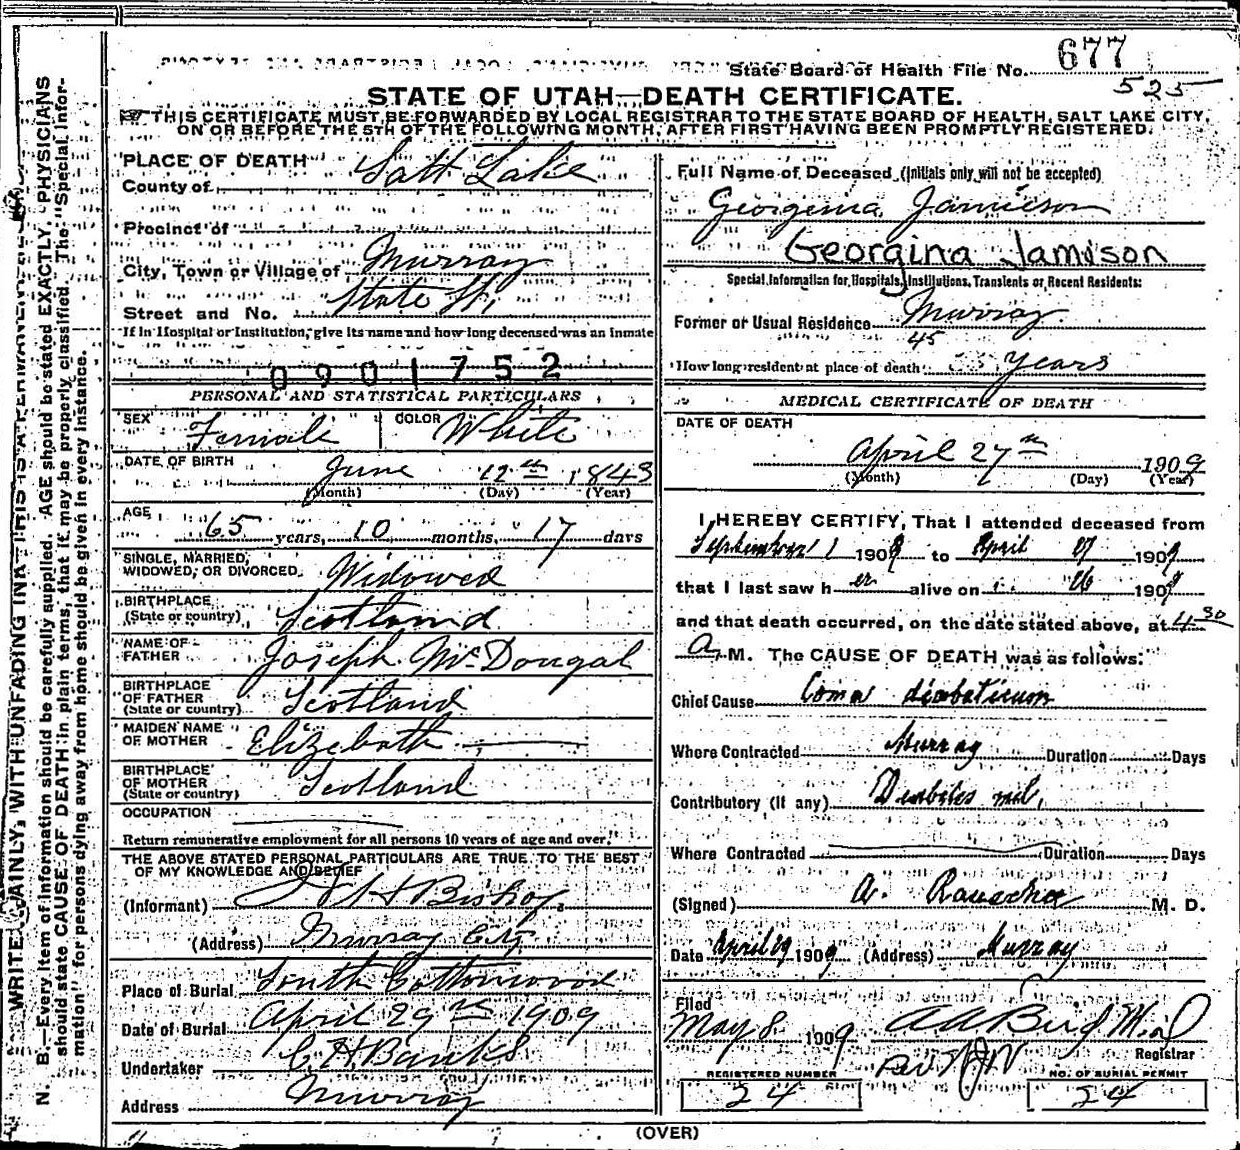 State Board of Health File No. 677
525
STATE OF UTAH—DEATH CERTIFICATE.
THIS CERTIFICATE MUST BE FORWARDED BY LOCAL REGISTRAR TO THE STATE BOARD OF HEALTH, SALT LAKE CITY,
ON OR BEFORE THE 5TH OF THE FOLLOWING MONTH, AFTER FIRST HAVING BEEN PROMPTLY REGISTERED.
WRITE PLAINLY, WITH UNFADING INK—THIS IS A PERMANENT
N. B.—Every item of information should be carefully supplied. AGE should be stated EXACTLY. PHYSICIANS
should state CAUSE OF DEATH in plain terms, that it may be properly classified. The "Special Infor-
mation" for persons dying away from home should be given in every instance.
PLACE OF DEATH
County of Salt Lake
Precinct of
City, Town or Village of Murray
Street and No. State St.
If in Hospital or Institution, give its name and how long deceased was an inmate
0901752
PERSONAL AND STATISTICAL PARTICULARS
SEX Female COLOR White
DATE OF BIRTH June 12th 1843
(Month) (Day) (Year)
AGE 65 years, 10 months, 17 days
SINGLE, MARRIED,
WIDOWED, OR DIVORCED Widowed
BIRTHPLACE
(State or country) Scotland
NAME OF
FATHER Joseph McDougal
BIRTHPLACE
OF FATHER
(State or country) Scotland
MAIDEN NAME
OF MOTHER Elizebath
BIRTHPLACE
OF MOTHER
(State or country) Scotland
OCCUPATION
Return remunerative employment for all persons 10 years of age and over.
THE ABOVE STATED PERSONAL PARTICULARS ARE TRUE TO THE BEST
OF MY KNOWLEDGE AND BELIEF
(Informant) H Bishop
(Address) Murray City
Place of Burial South Cottonwood
Date of Burial April 29th 1909
Undertaker C. H. Banks
Address Murray
Full Name of Deceased (Initials only will not be accepted)
Georgenia Jamieson
Georgina Jamison
Special Information for Hospitals, Institutions, Transients or Recent Residents:
Former or Usual Residence Murray
45
How long resident at place of death Years
MEDICAL CERTIFICATE OF DEATH
DATE OF DEATH
April 27th 1909
(Month) (Day) (Year)
I HEREBY CERTIFY, That I attended deceased from
September 1 1908 to April 27 1909
that I last saw her alive on 26 1909
and that death occurred, on the date stated above, at 4 30
A. M. The CAUSE OF DEATH was as follows:
Chief Cause Coma diabeticum
Where Contracted Murray Duration Days
Contributory (if any) Diabites mel.
Where Contracted Duration Days
(Signed) A. M. D.
Date April 29 1909 (Address) Murray
Filed
May 8 1909 A A Bird M.D.
Registrar
REGISTERED NUMBER 24
NO. OF BURIAL PERMIT 24
(OVER)